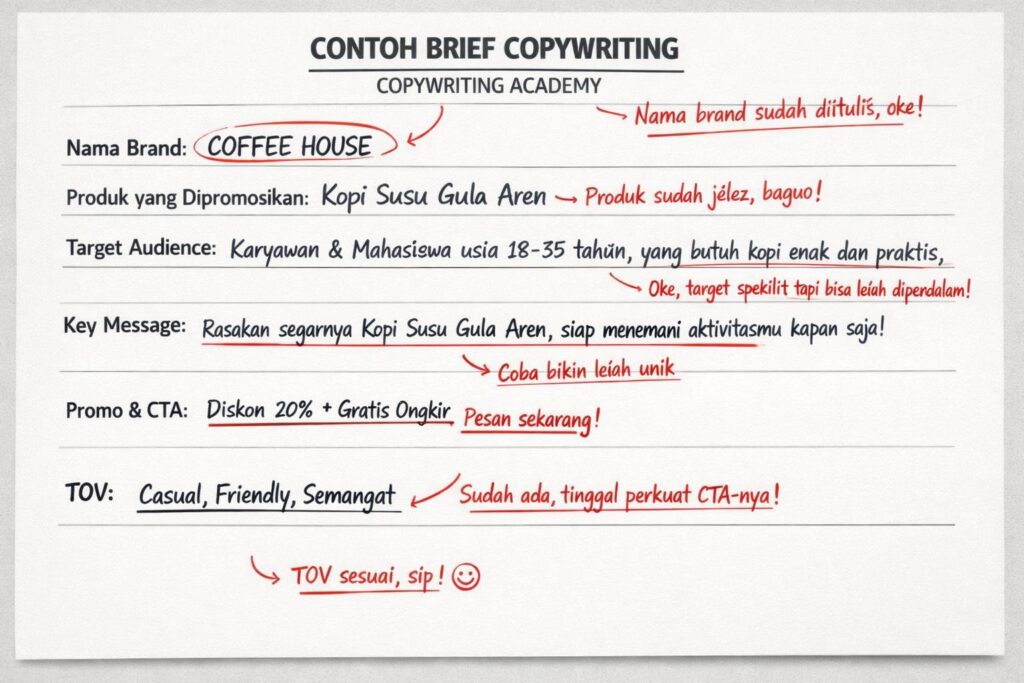 CONTOH BRIEF COPYWRITING
COPYWRITING ACADEMY
Nama brand sudah diitulis, oke!
Nama Brand: COFFEE HOUSE
Produk yang Dipromosikan: Kopi Susu Gula Aren Produk sudah jélez, baguo!
Target Audience: Karyawan & Mahasigwa usia 18-35 tahun, yang butuh kopi enak dan praktis,
Oke, target spekilit tapi bisa leiah diperdalam!
Key Message: Rasakan segarnya Kopi Susu Gula Aren, siap menemani aktivitasmu kapan saja!
Coba bikin leiah unik
Promo & CTA: Diskon 20% + Gratis Ongkir Pesan sekarang!
TOV: Casual, Friendly, Semangat Sudah ada, tinggal perkuat CTA-nya!
TOV sesuai, sip! ☺